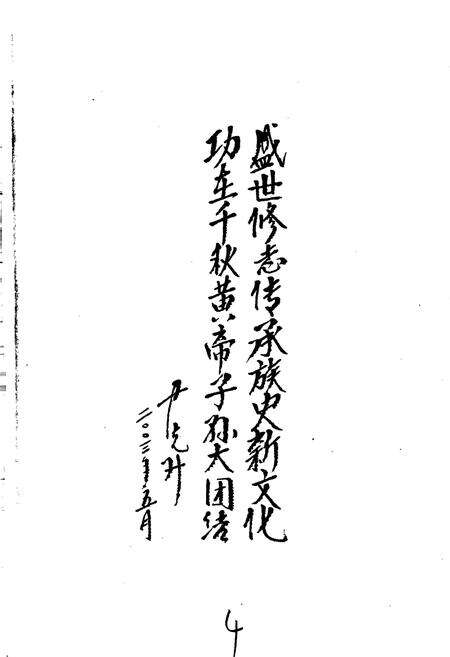 盛世修志传承族史新文化
功在千秋黄帝子孙大团结
尹克升
二〇〇三年五月
4